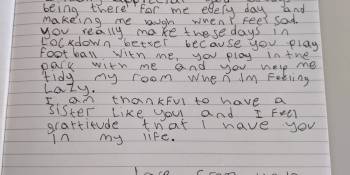 being there for me every day and
makeing me laugh when I feel sad.
You really make these days in
Lockdown better because you play
football with me, you play in the
park with me and you help me
tidy my room when Im feeling
Lazy.
I am thankful to have a
sister like you and I feel
grattitude that I have you
in my life.